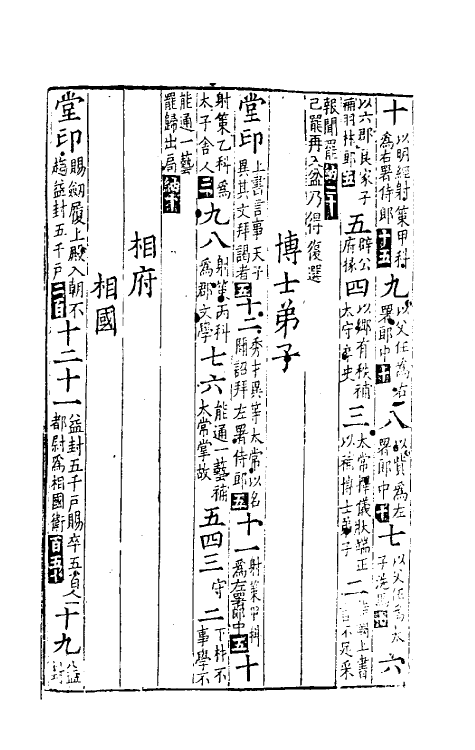 十以明經射策甲科爲右署侍郎十五九以父任爲右署郎中十八以貲爲左署郎中十七以父任爲太子洗馬六
以六郡良家子補羽林郎五五辟公府掾四以鄉有秩補太守卒史三太常擇儀狀端正以補博士弟子二上書不足采
報聞罷納二十己罷再入盆乃得復選
博士弟子
堂印上書言事天子異其文拜謁者五十二秀才異等太常以名聞詔拜左署侍郎五十一射策甲科爲左署郎中五十
射策乙科爲太子舍人三九八射策丙科爲郡文學七六能通一藝補太常掌故五四三守二下材不事學不
能通一藝罷歸出局納十
相府
相國
堂印賜劒履上殿入朝不趨益封五千戸二百十二十一益封五千戸賜卒五百人都尉爲相國衛百五十十九益封